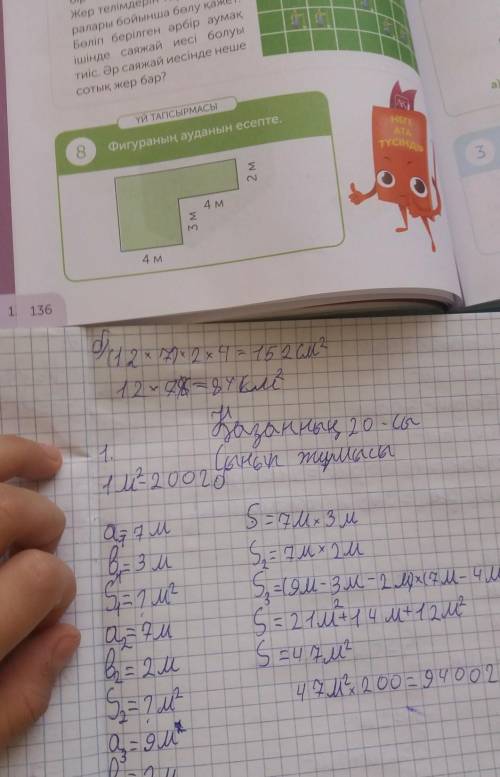 Жер телімдерін
ралары бойынша бөлу қажет.
Бөліп берілген әрбір аумақ
ішінде саяжай иесі болуы
тиіс. Әр саяжай иесінде неше
сотық жер бар?
ҮЙ ТАПСЫРМАСЫ
8 Фигураның ауданын есепте.
2 м
4 м
3 м
4 м
НЕГЕ
АТА
ТҮСІНДІР
3
136
12 × 7 × 2 × 4 = 152 см²
12 × = 84 км²
Қазанның 20-сы
1. Сынып жұмысы
1 м² = 200 г
a₁ = 7 м S = 7м × 3м
b₁ = 3 м S₂ = 7м × 2м
S₁ = ? м² S₃ = (9м - 3м - 2м) × (7м - 4м
a₂ = 7м S = 21м² + 14м + 12м²
b₂ = 2м S = 47м²
S₂ = ? м² 47м² × 200 = 9400г
a₃ = 9м